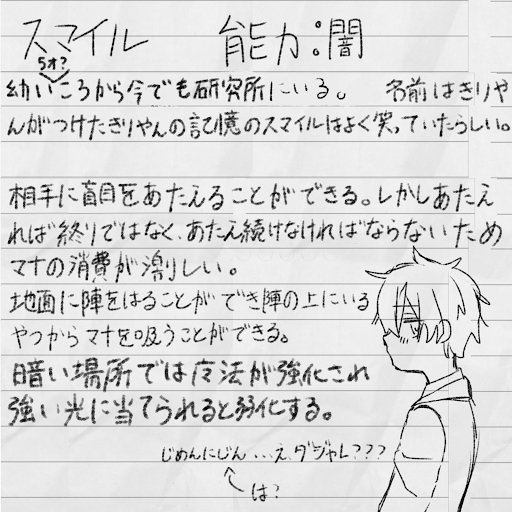 スマイル　能力:闇
5才?
幼いころから今でも研究所にいる。　名前はきりや
んがつけたきりやんの記憶のスマイルはよく笑っていたらしい。
相手に盲目をあたえることができる。しかしあたえ
れば終りではなく、あたえ続けなければならないため
マナの消費が激しい。
地面に陣をはることができ陣の上にいる
やつからマナを吸うことができる。
暗い場所では魔法が強化され
強い光に当てられると弱化する。
じめんにじん...え、ダジャレ???
は?